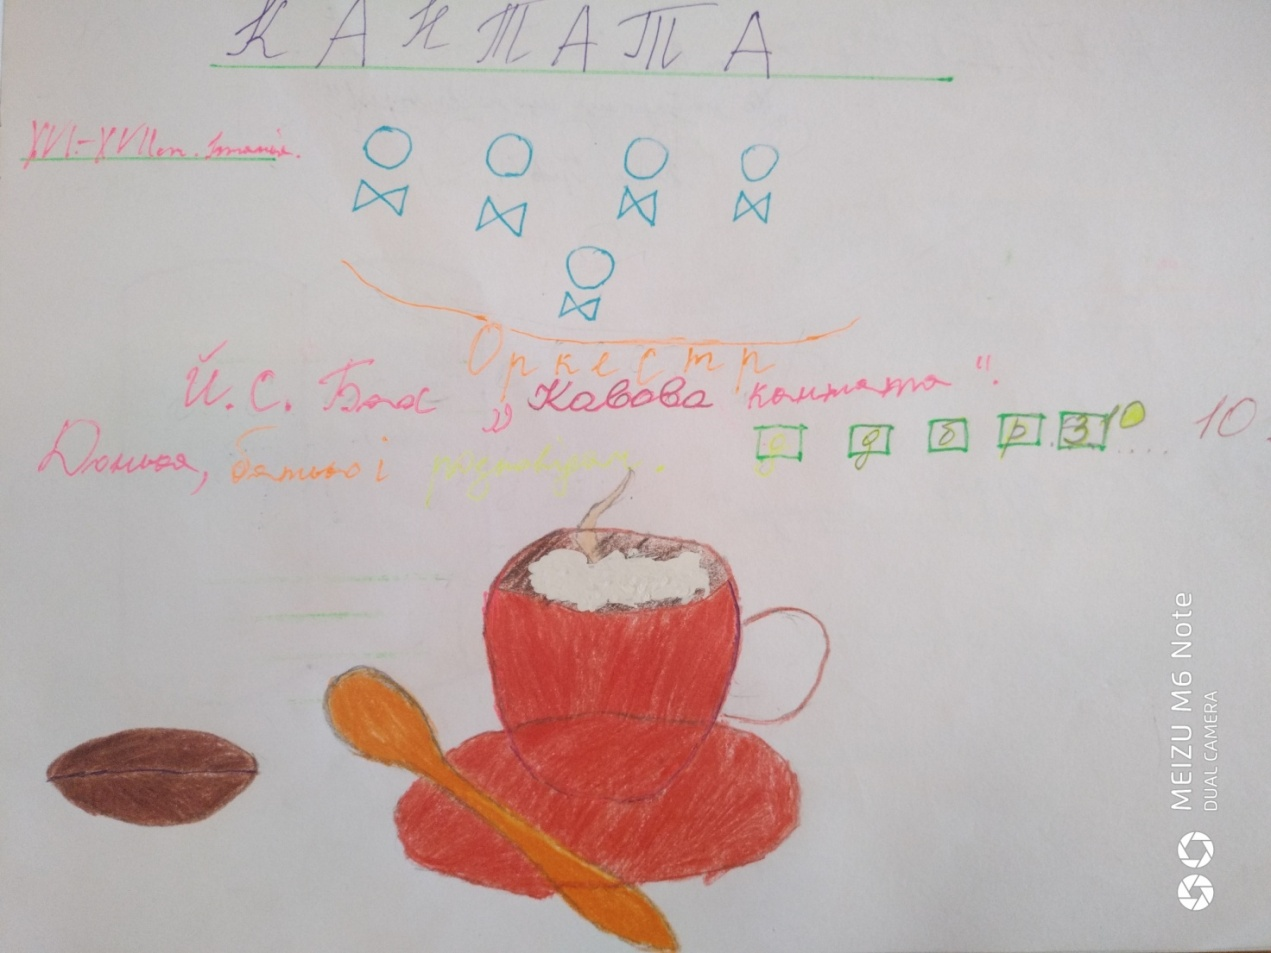 КАНТАТА
XVI.-XVIIст. Італія.
Оркестр
Й.С. Бах „Кавова кантата".
Донька, батько і розповідач.
д д б р З 10 ..... 10.
MEIZU M6 Note
DUAL CAMERA